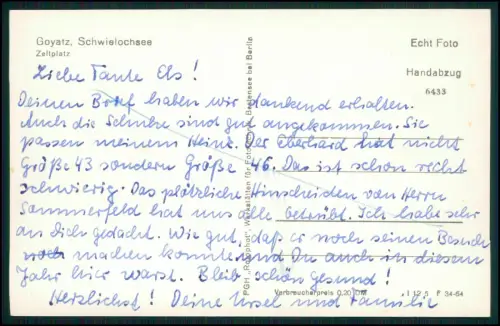 Goyatz, Schwielochsee
Zeltplatz
Echt Foto
Handabzug
6433
Liebe Tante Els!
Deinen Brief haben wir dankend erhalten.
Auch die Schuhe sind gut angekommen. Sie
passen meinem Heinz. Der Eberhard hat nicht
Größe 43 sondern Größe 46. Das ist schon recht
schwierig. Das plötzliche Hinscheiden von Herrn
Sommerfeld hat uns alle betrübt. Ich habe sehr
an Dich gedacht. Wie gut, daß er noch seinen Besuch
noch machen konnte und Du auch in diesem
Jahr hier warst. Bleib schön gesund!
Herzlichst! Deine Ursel und Familie
PGH „Rotophot" Werkstätten für Fotografie, Bestensee bei Berlin
Verbraucherpreis 0,20 DM
I 12 5 P 34-64